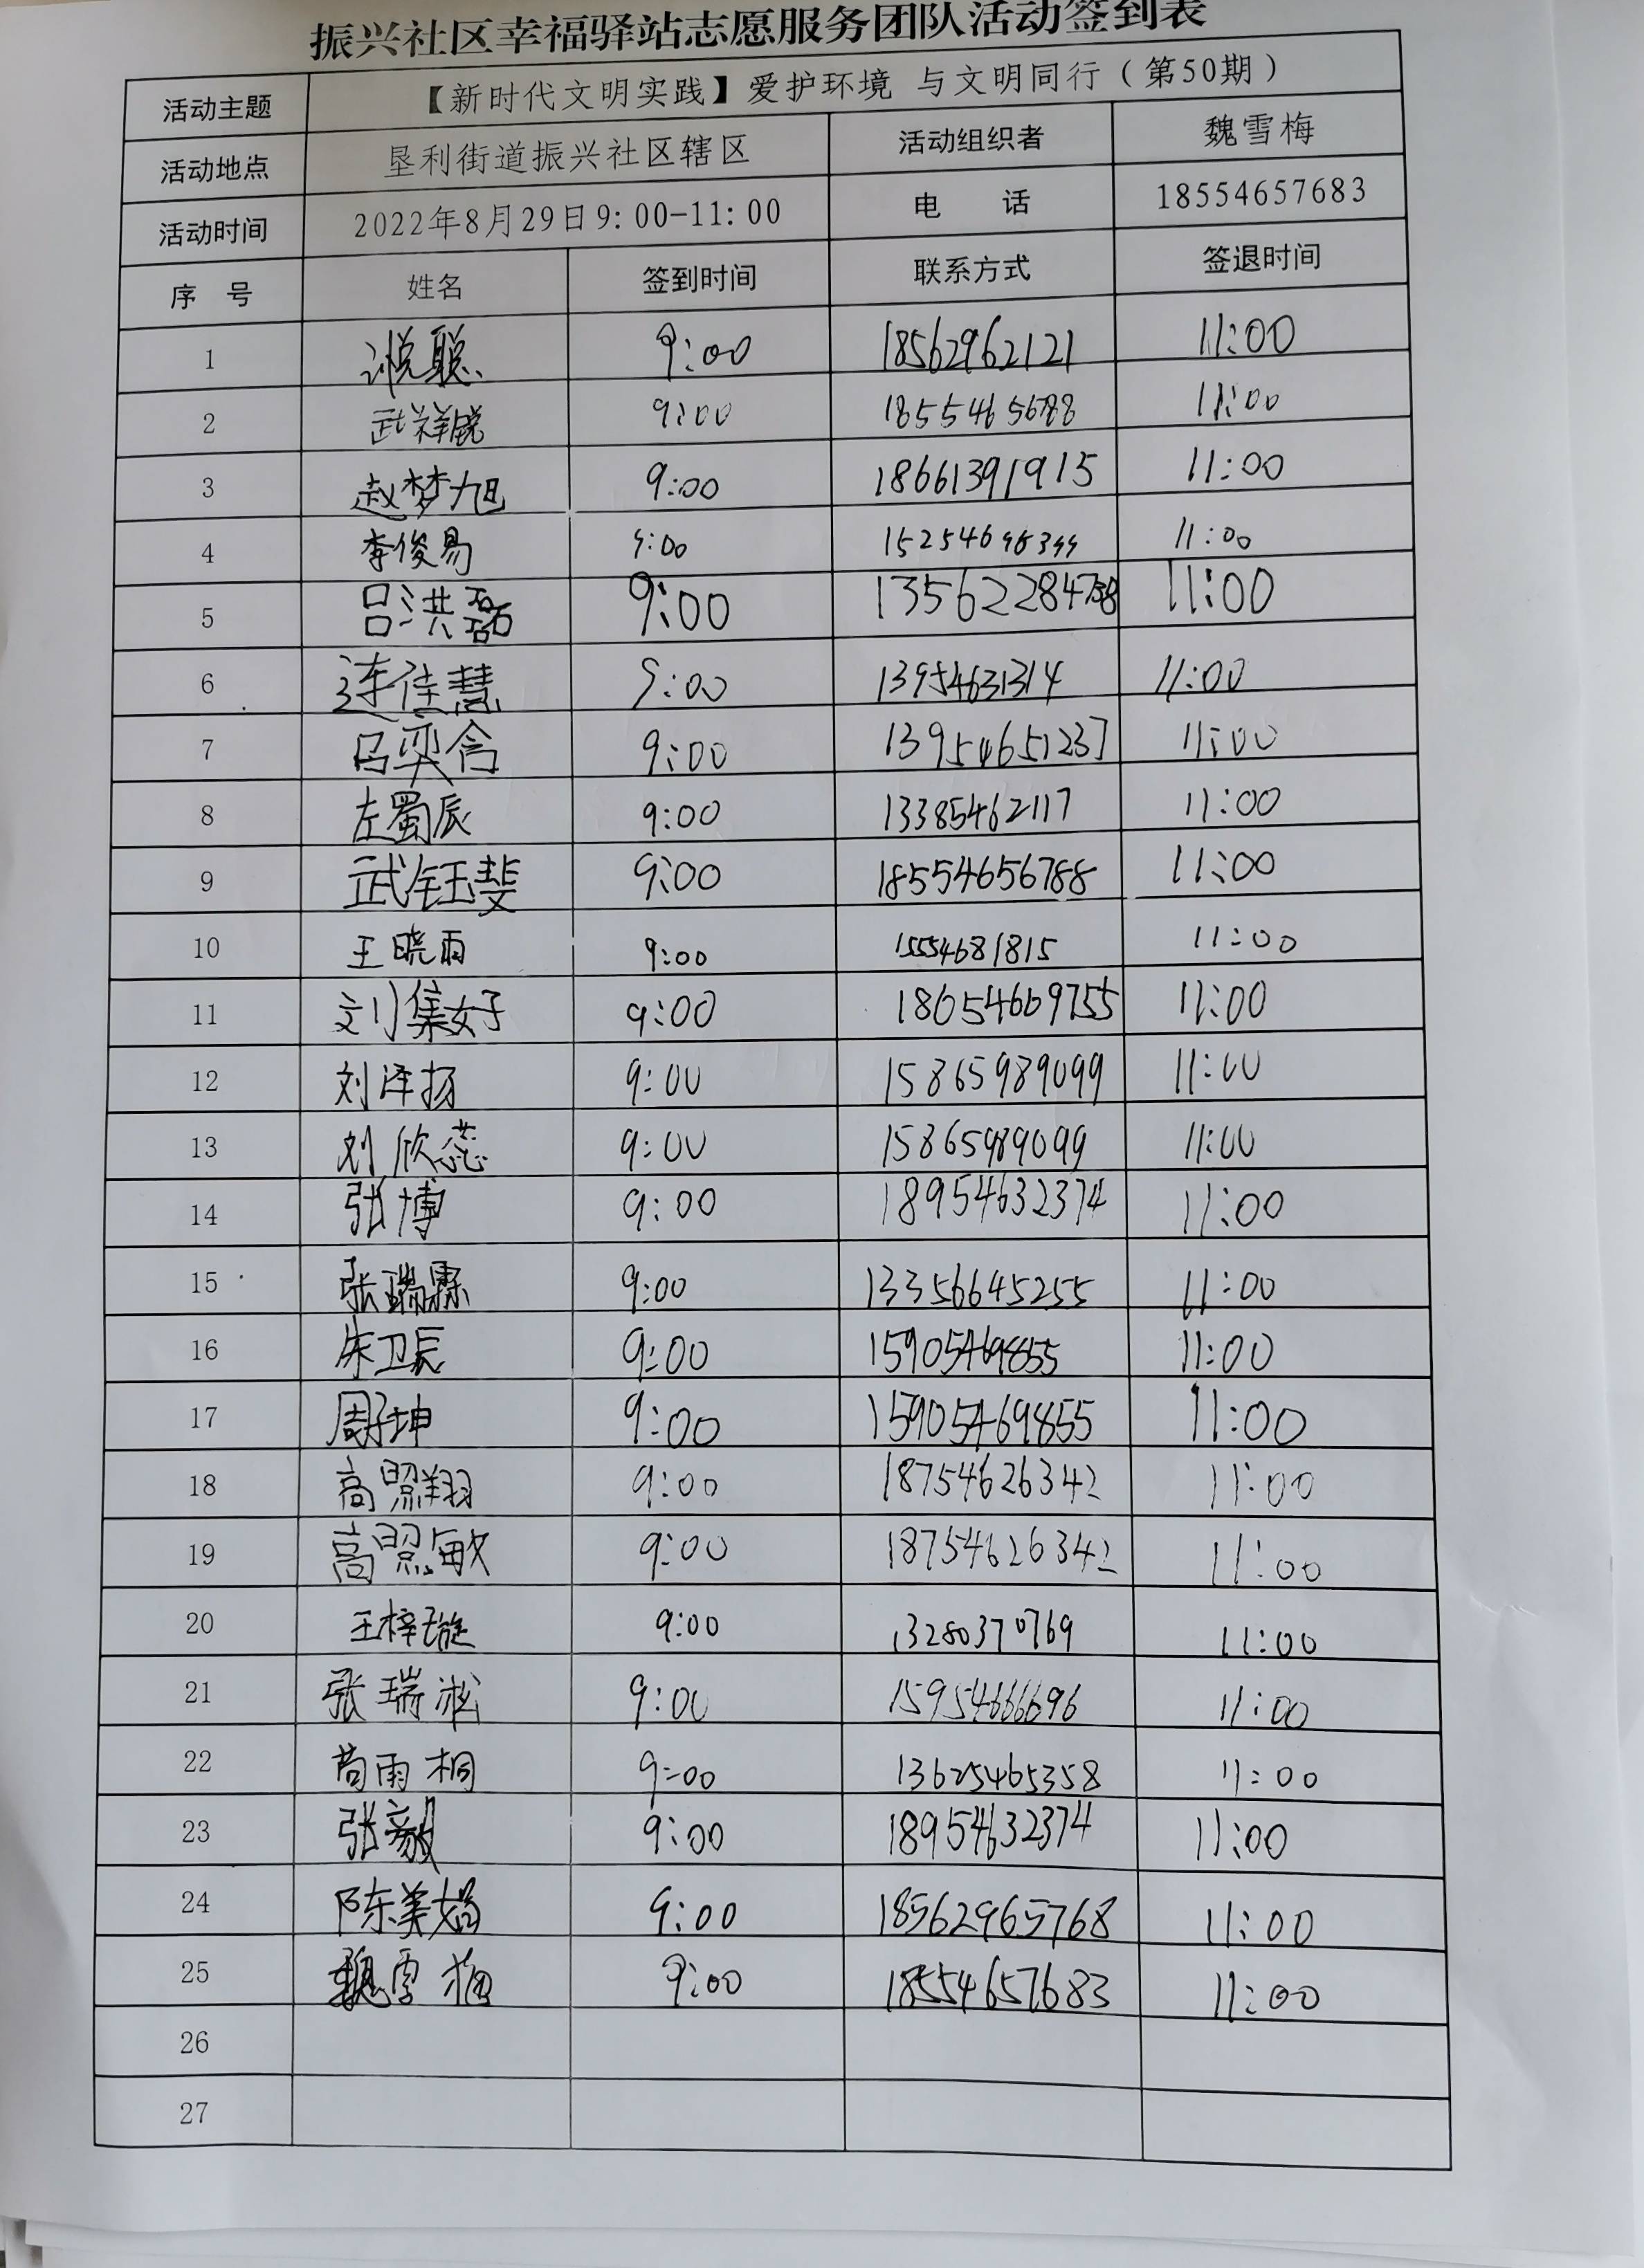 振兴社区幸福驿站志愿服务团队活动签到表
活动主题 【新时代文明实践】爱护环境 与文明同行（第50期）
活动地点 垦利街道振兴社区辖区 活动组织者 魏雪梅
活动时间 2022年8月29日9:00-11:00 电 话 18554657683
序 号 姓名 签到时间 联系方式 签退时间
1 9:00 18562962121 11:00
2 武祥锐 9:00 11:00
3 赵梦旭 9:00 18661391915 11:00
4 李俊易 9:00 11:00
5 吕洪磊 9:00 11:00
6 连佳慧 9:00 13954631314 11:00
7 吕奕含 9:00 13954651237 11:00
8 左蜀辰 9:00 13385462117 11:00
9 武钰斐 9:00 18554656788 11:00
10 王晓雨 9:00 15554681815 11:00
11 刘集好 9:00 18654669755 11:00
12 刘泽扬 9:00 15865989099 11:00
13 刘欣蕊 9:00 15865989099 11:00
14 张博 9:00 18954632374 11:00
15 张瑞霖 9:00 13356645255 11:00
16 朱卫辰 9:00 15905469855 11:00
17 周子坤 9:00 15905469855 11:00
18 高照翔 9:00 18754626342 11:00
19 高照敏 9:00 18754626342 11:00
20 王梓璇 9:00 13280370769 11:00
21 张瑞淞 9:00 15954666696 11:00
22 苘雨桐 9:00 13625465358 11:00
23 张毅 9:00 18954632374 11:00
24 陈美娟 9:00 18562965768 11:00
25 魏雪梅 9:00 18554657683 11:00
26
27